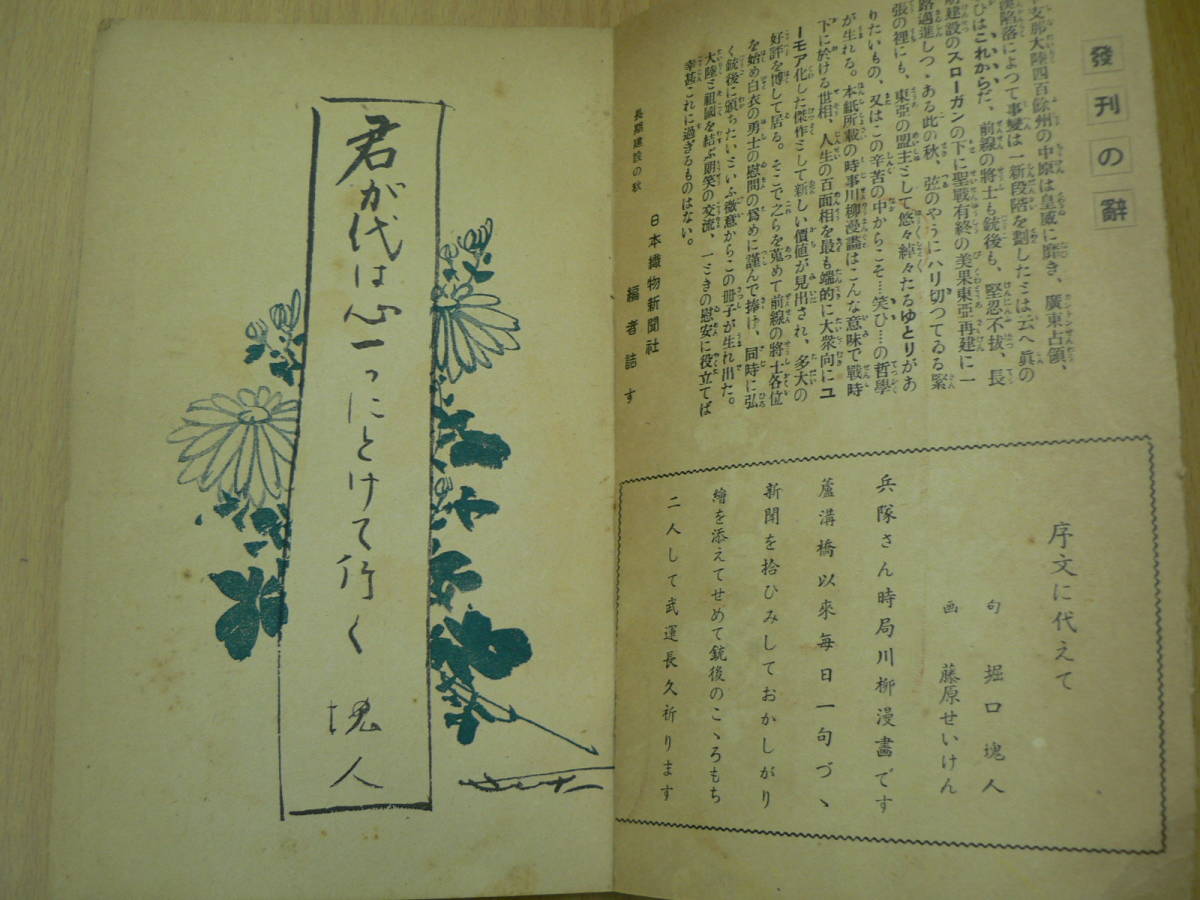 發刊の辭
支那大陸四百餘州の中原は皇威に靡き、廣東占領、
陷落によつて事變は一新段階を劃したとは云へ眞の
ひはこれからだ、前線の將士も銃後も、堅忍不拔、長
建設のスローガンの下に聖戰有終の美果東亞再建に一
路邁進しつゝある此の秋、弦のやうにハリ切つてゐる緊
張の裡にも、東亞の盟主として悠々綽々たるゆとりがあ
りたいもの、又はこの辛苦の中からこそ…笑ひ…の哲學
が生れる。本紙所載の時事川柳漫畫はこんな意味で戰時
下に於ける世相、人生の百面相を最も端的に大衆向にユ
ーモア化した傑作として新しい價値が見出され、多大の
好評を博して居る。そこで之らを蒐めて前線の將士各位
を始め白衣の勇士の慰問の爲めに謹んで捧げ、同時に弘
く銃後に頒ちたいといふ微意からこの册子が生れ出た。
大陸と祖國を結ぶ朗笑の交流、一ときの慰安に役立てば
幸甚これに過ぎるものはない。
長期建設の秋
日本織物新聞社
編者誌す
序文に代えて
句 堀口塊人
画 藤原せいけん
兵隊さん時局川柳漫畫です
蘆溝橋以來每日一句づゝ
新聞を拾ひみしておかしがり
繪を添えてせめて銃後のこゝろもち
二人して武運長久祈ります
君が代は心一つにとけて行く 塊人